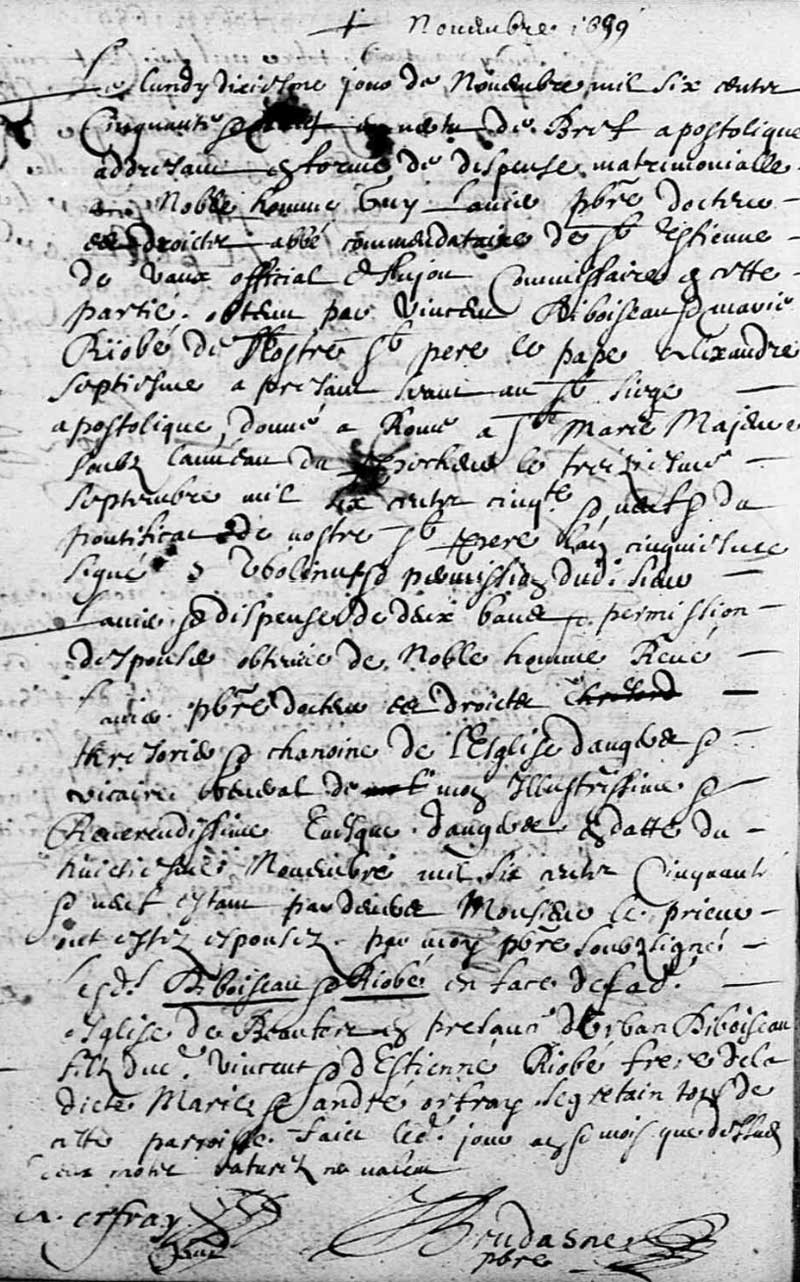 + Novembre 1659
Le lundy dixiesme jour de Novembre mil six centz
Cinquante & en vertu de Bref apostolique
addressant en forme de dispense matrimonialle
Noble homme Guy Lanier pbrē docteur
es droictz abbé commendataire de st Estienne
de vaux official d'Anjou Commissaire en cette
partie. obtenu par Vincent Riboiseau & marie
Riobé de Nostre st pere le pape Alexandre
septiesme a present seant au st siege
apostolique donné a Rome a ste Marie Majeure
soubz l'anneau du pescheur le treiziesme
septembre mil six centz cinqte & neuf & du
pontificat de nostre st pere l'an cinquiesme
signé & permission dudt sieur
Lanier & dispense de deux bans & permission
despouser obtenue de Noble homme René
Lanier pbrē docteur es droictz
thresorier & chanoine de l'Esglise d'angers &
vicaire general de mon Illustrissime &
Reverendissime Evesque d'angers en datte du
huictiesme Novembre mil six centz Cinquante
& neuf estant pardevers Monsieur le prieur
ont estez espousez par moy pbrē soubzsigné
lesdts Riboiseau & Riobé en face de ladt
esglise de en presence d'Urban Riboiseau
filz dudt Vincent & d'Estienne Riobé frere de la
dicte Marie & andré orfray segretain tous de
cette parroisse. faict ledt jour an & mois que dessus
deux motz raturez ne valent
A. orfray
Brudasne
pbre